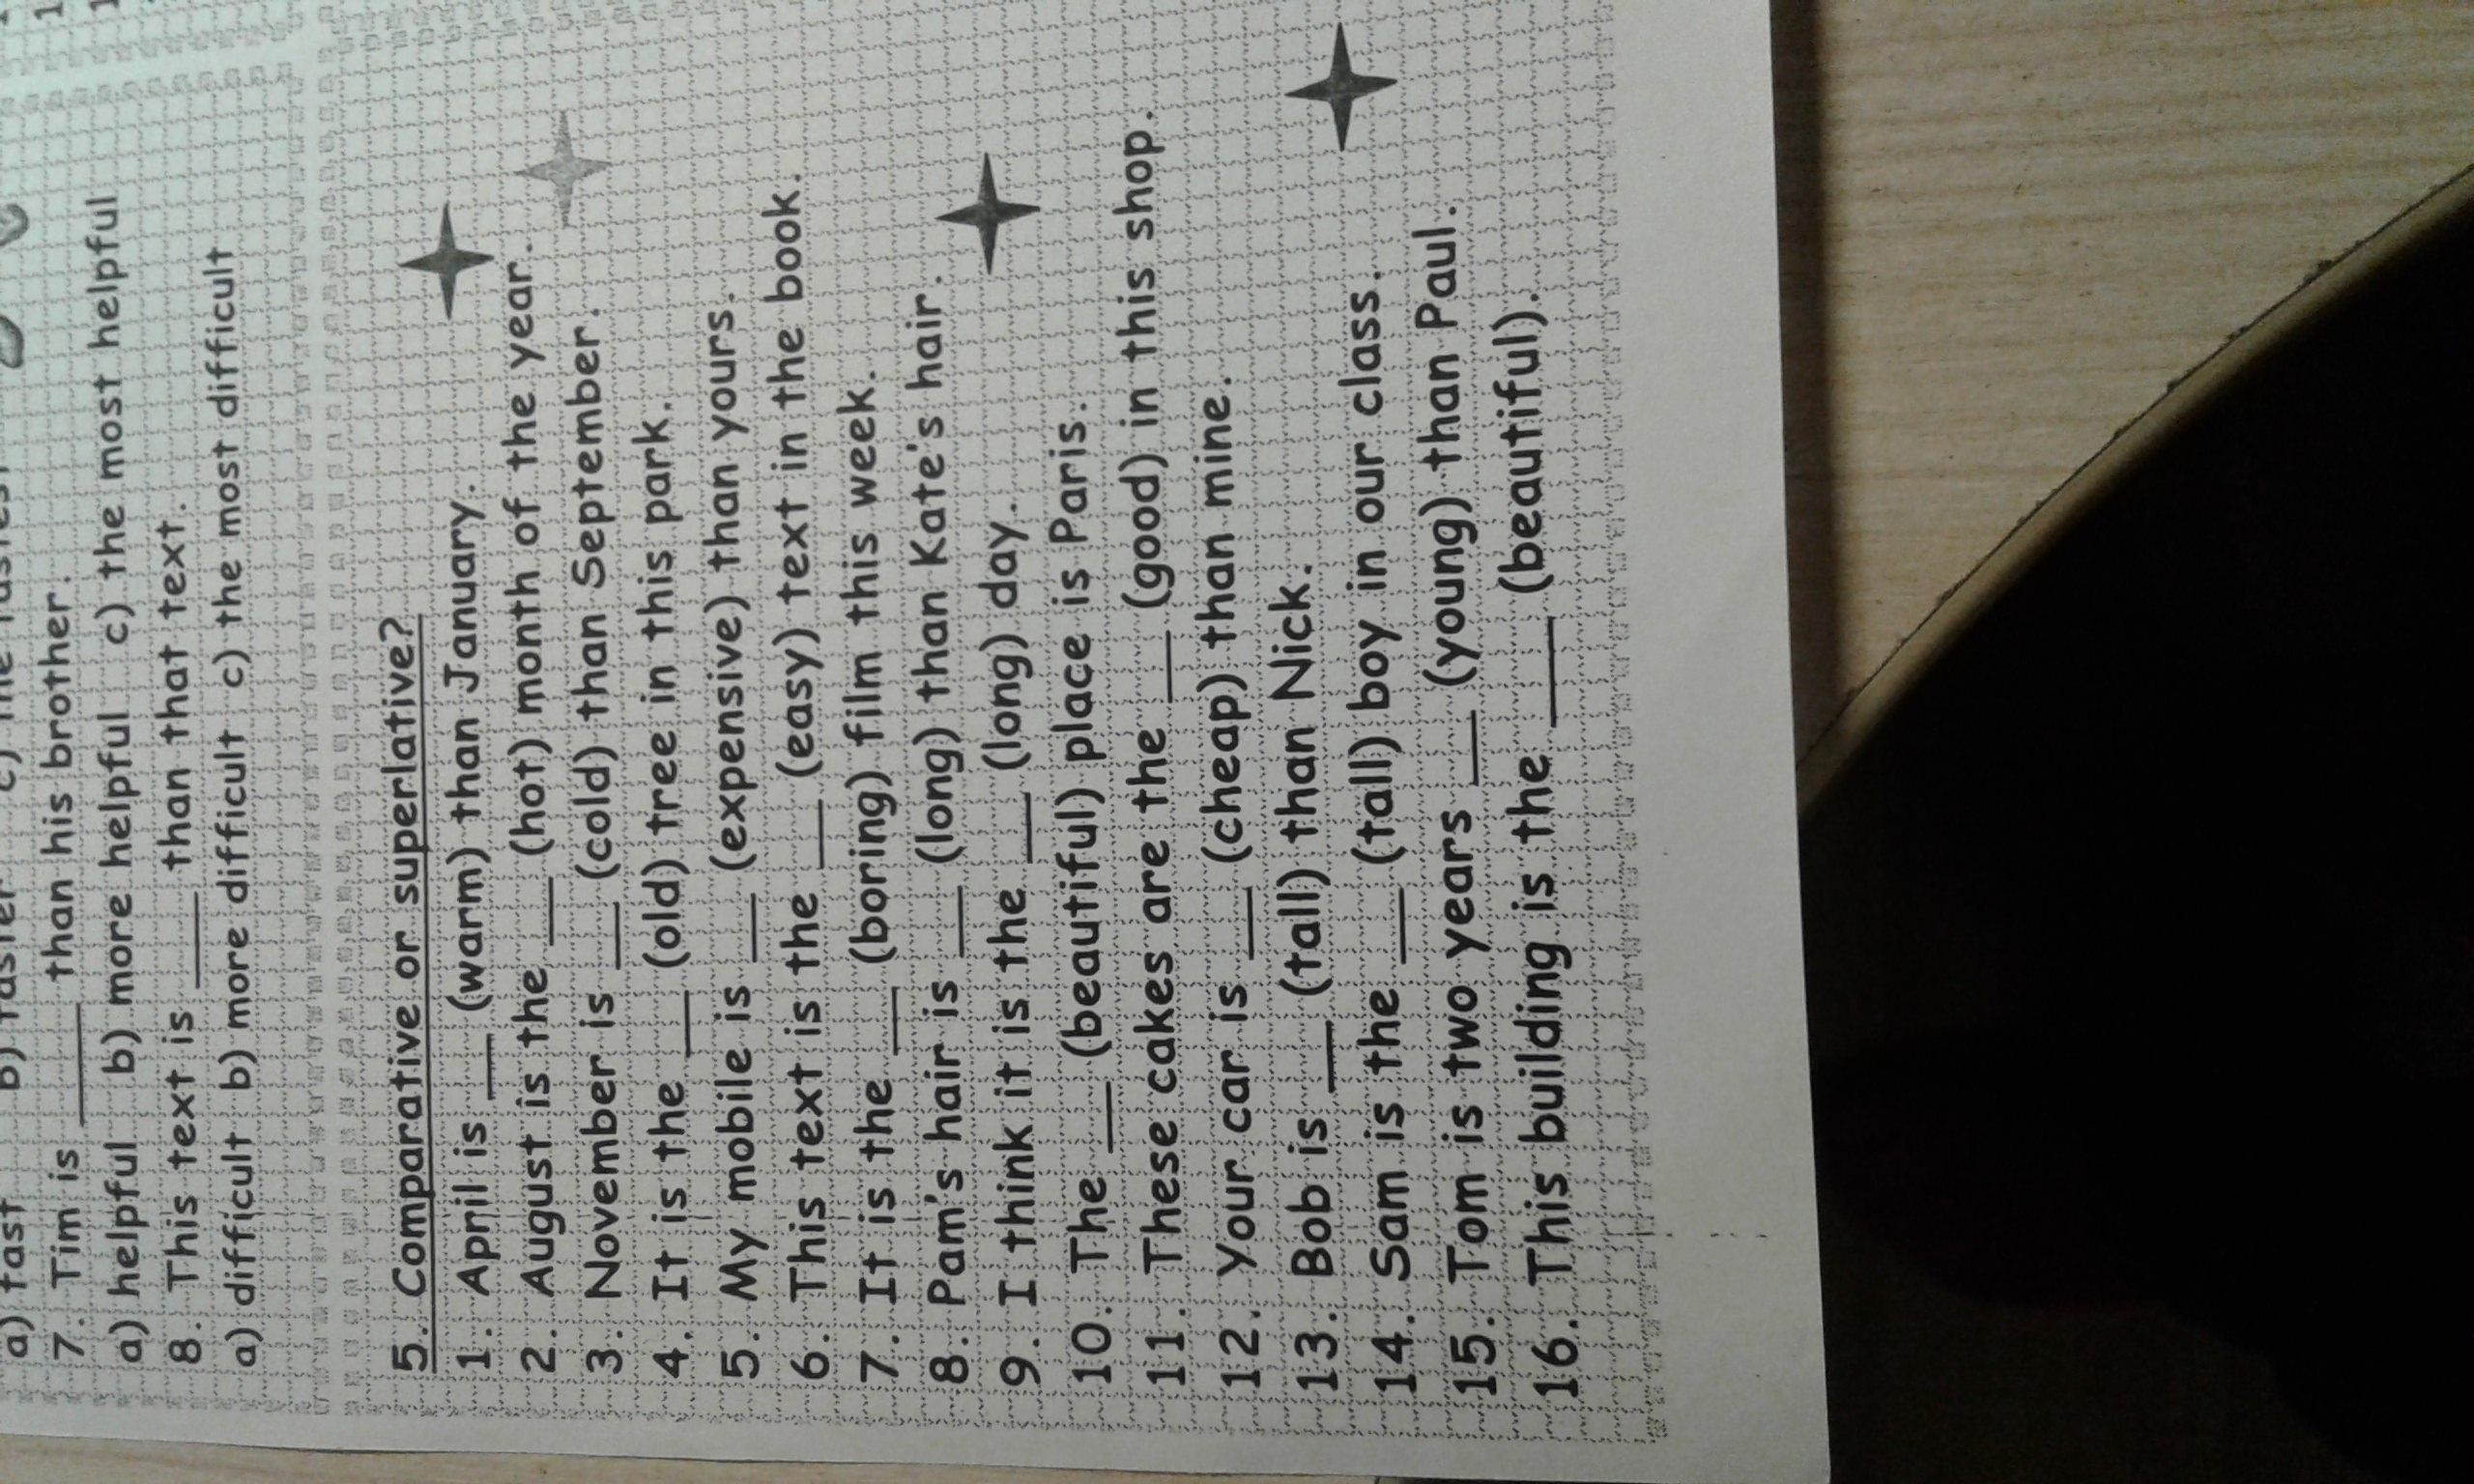 a) fast b) faster c) the
7. Tim is ____ than his brother.
a) helpful b) more helpful c) the most helpful
8. This text is ____ than that text.
a) difficult b) more difficult c) the most difficult
5. Comparative or superlative?
1. April is ___ (warm) than January.
2. August is the ___ (hot) month of the year.
3. November is ___ (cold) than September.
4. It is the ___ (old) tree in this park.
5. My mobile is ___ (expensive) than yours.
6. This text is the ___ (easy) text in the book.
7. It is the ___ (boring) film this week.
8. Pam's hair is ___ (long) than Kate's hair.
9. I think it is the ___ (long) day.
10. The ___ (beautiful) place is Paris.
11. These cakes are the ___ (good) in this shop.
12. Your car is ___ (cheap) than mine.
13. Bob is ___ (tall) than Nick.
14. Sam is the ___ (tall) boy in our class.
15. Tom is two years ___ (young) than Paul.
16. This building is the ____ (beautiful).